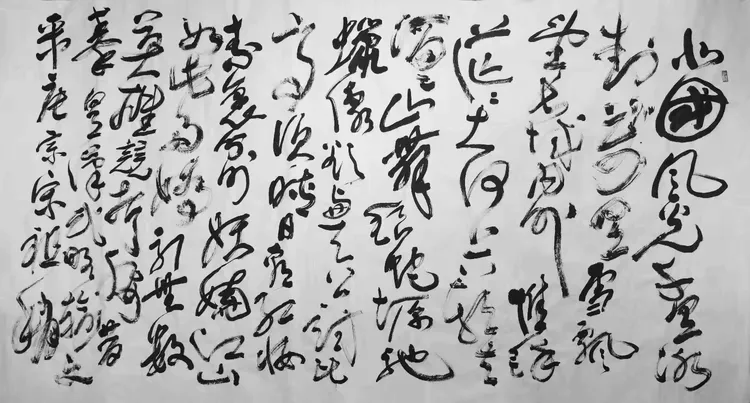 北國风光千里冰
封萬里雪飘
望长城内外惟馀
茫茫大河上下顿失
滔滔山舞银蛇原驰
蠟象欲与天公试比
高须晴日看红妆
素裹分外妖娆江山
如此多娇引无数
英雄競折腰惜
秦皇漢武略输文
采唐宗宋祖稍